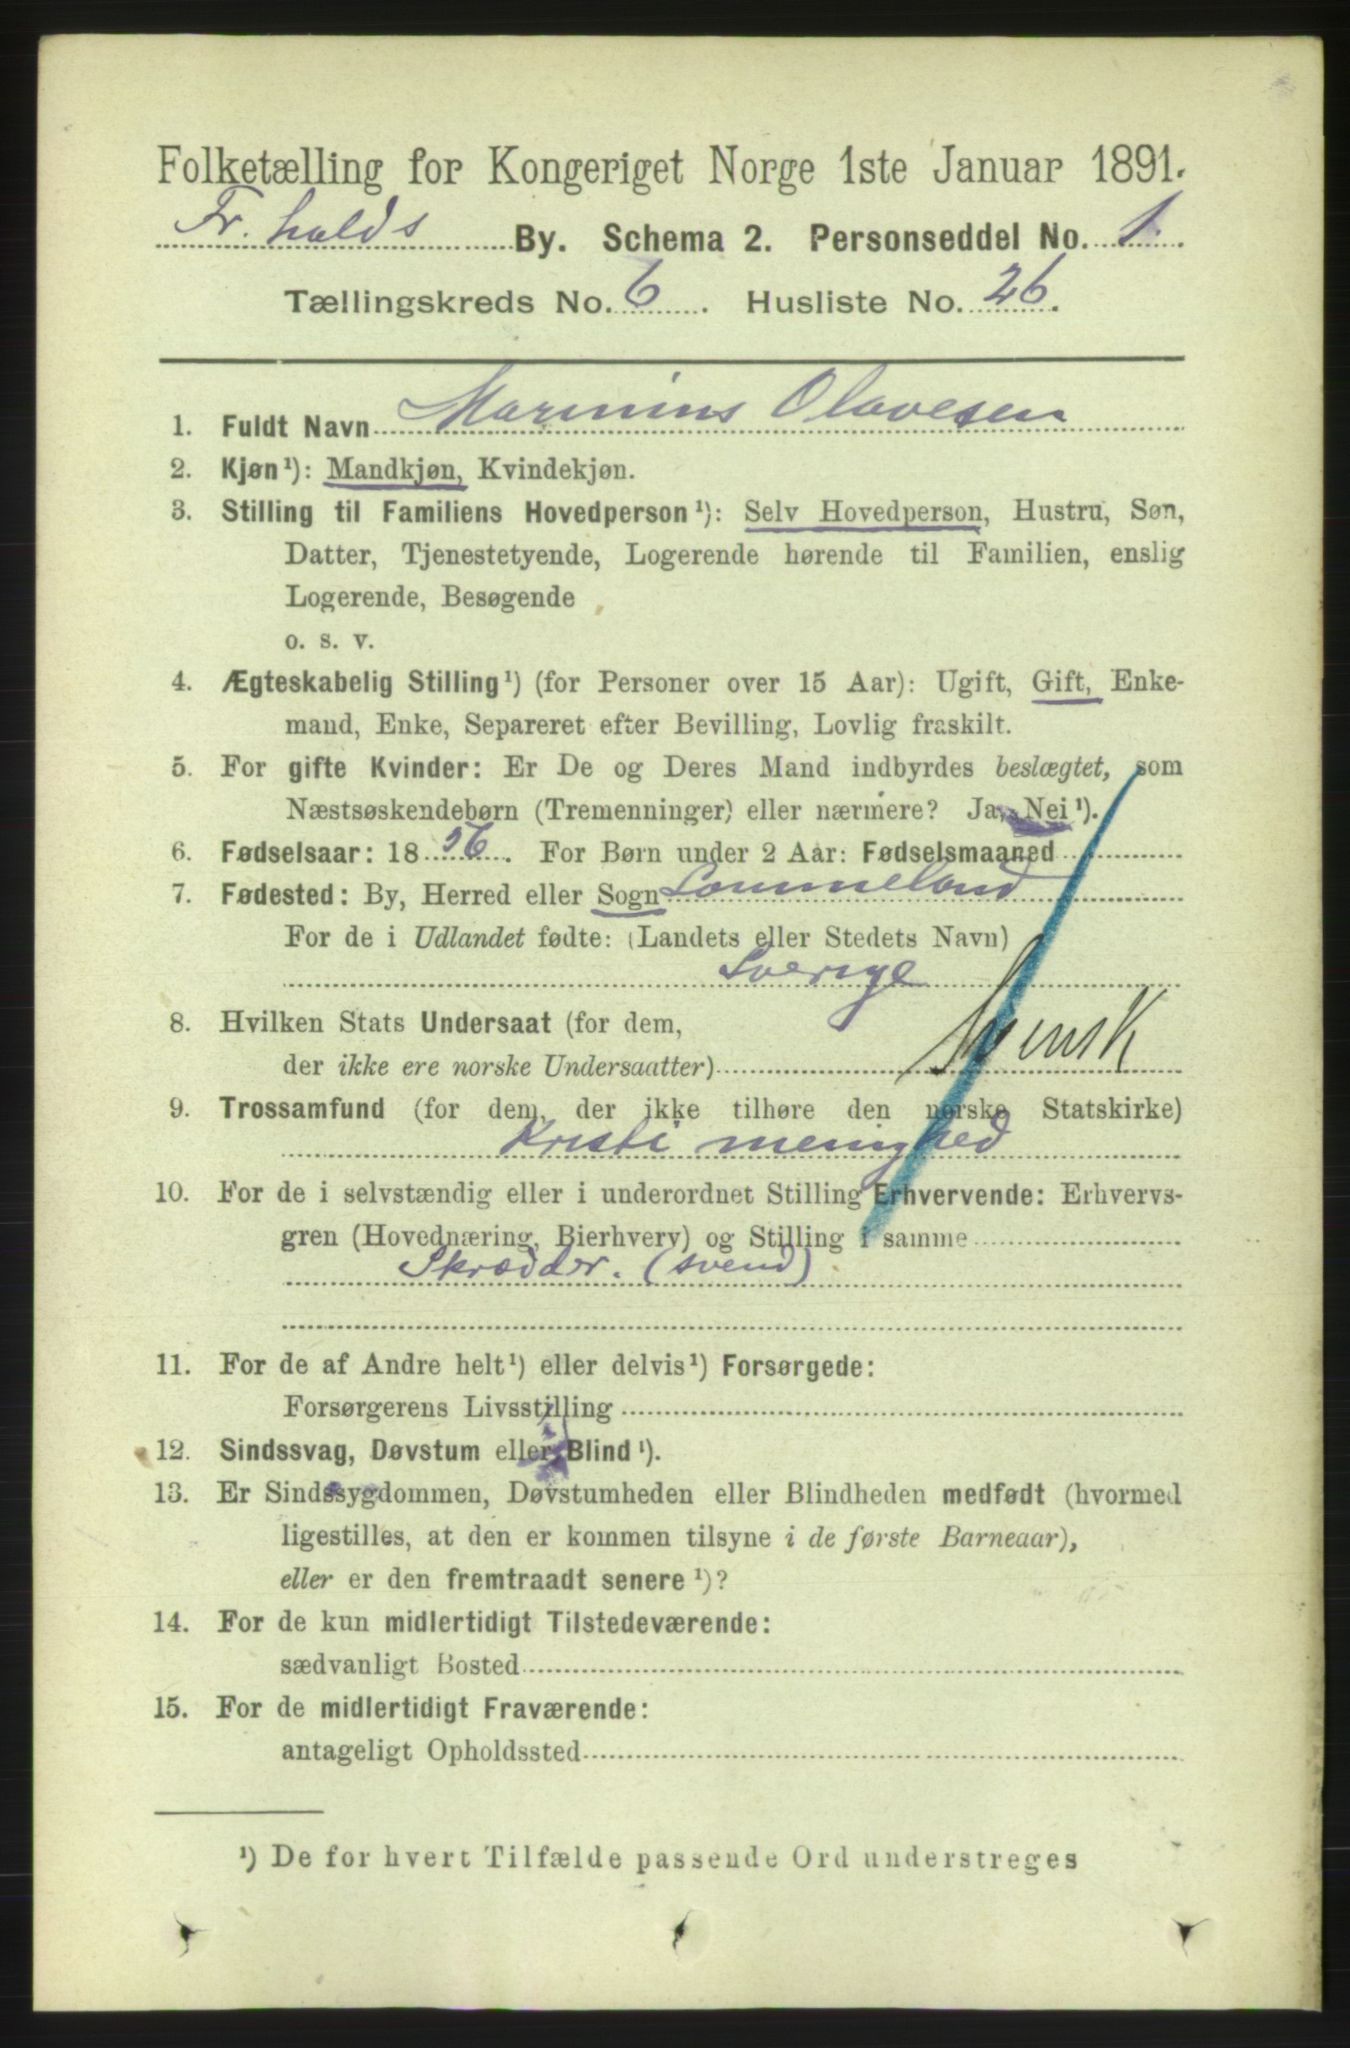 Folketælling for Kongeriget Norge 1ste Januar 1891.
Fr. halds By. Schema 2. Personseddel No. 1.
Tællingskreds No. 6. Husliste No. 26.
1. Fuldt Navn Marinius Olavesen
2. Kjøn¹): Mandkjøn, Kvindekjøn.
3. Stilling til Familiens Hovedperson¹): Selv Hovedperson, Hustru, Søn,
Datter, Tjenestetyende, Logerende hørende til Familien, enslig
Logerende, Besøgende
o. s. v.
4. Ægteskabelig Stilling¹) (for Personer over 15 Aar): Ugift, Gift, Enke-
mand, Enke, Separeret efter Bevilling, Lovlig fraskilt.
5. For gifte Kvinder: Er De og Deres Mand indbyrdes beslægtet, som
Næstsøskendebørn (Tremenninger) eller nærmere? Ja, Nei¹).
6. Fødselsaar: 1856. For Børn under 2 Aar: Fødselsmaaned
7. Fødested: By, Herred eller Sogn Lommeland
For de i Udlandet fødte: (Landets eller Stedets Navn)
Sverige
8. Hvilken Stats Undersaat (for dem,
der ikke ere norske Undersaatter) Svensk
9. Trossamfund (for dem, der ikke tilhøre den norske Statskirke)
Kristi menighed
10. For de i selvstændig eller i underordnet Stilling Erhvervende: Erhvervs-
gren (Hovednæring, Bierhverv) og Stilling i samme
Skrædder. (svend)
11. For de af Andre helt¹) eller delvis¹) Forsørgede:
Forsørgerens Livsstilling
12. Sindssvag, Døvstum eller Blind¹).
13. Er Sindssygdommen, Døvstumheden eller Blindheden medfødt (hvormed
ligestilles, at den er kommen tilsyne i de første Barneaar),
eller er den fremtraadt senere¹)?
14. For de kun midlertidigt Tilstedeværende:
sædvanligt Bosted
15. For de midlertidigt Fraværende:
antageligt Opholdssted
¹) De for hvert Tilfælde passende Ord understreges